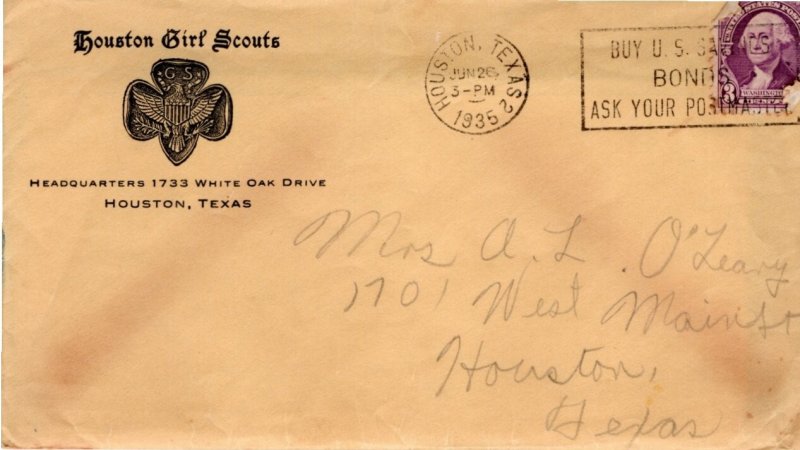 Houston Girl Scouts
GS
HEADQUARTERS 1733 WHITE OAK DRIVE
HOUSTON, TEXAS
HOUSTON, TEXAS 2
JUN 26
3-PM
1935
BUY U.S. SAVINGS
BONDS
ASK YOUR POSTMASTER
3
WASHINGTON
Mrs A. L. O'Leary
1701 West Main St
Houston,
Texas